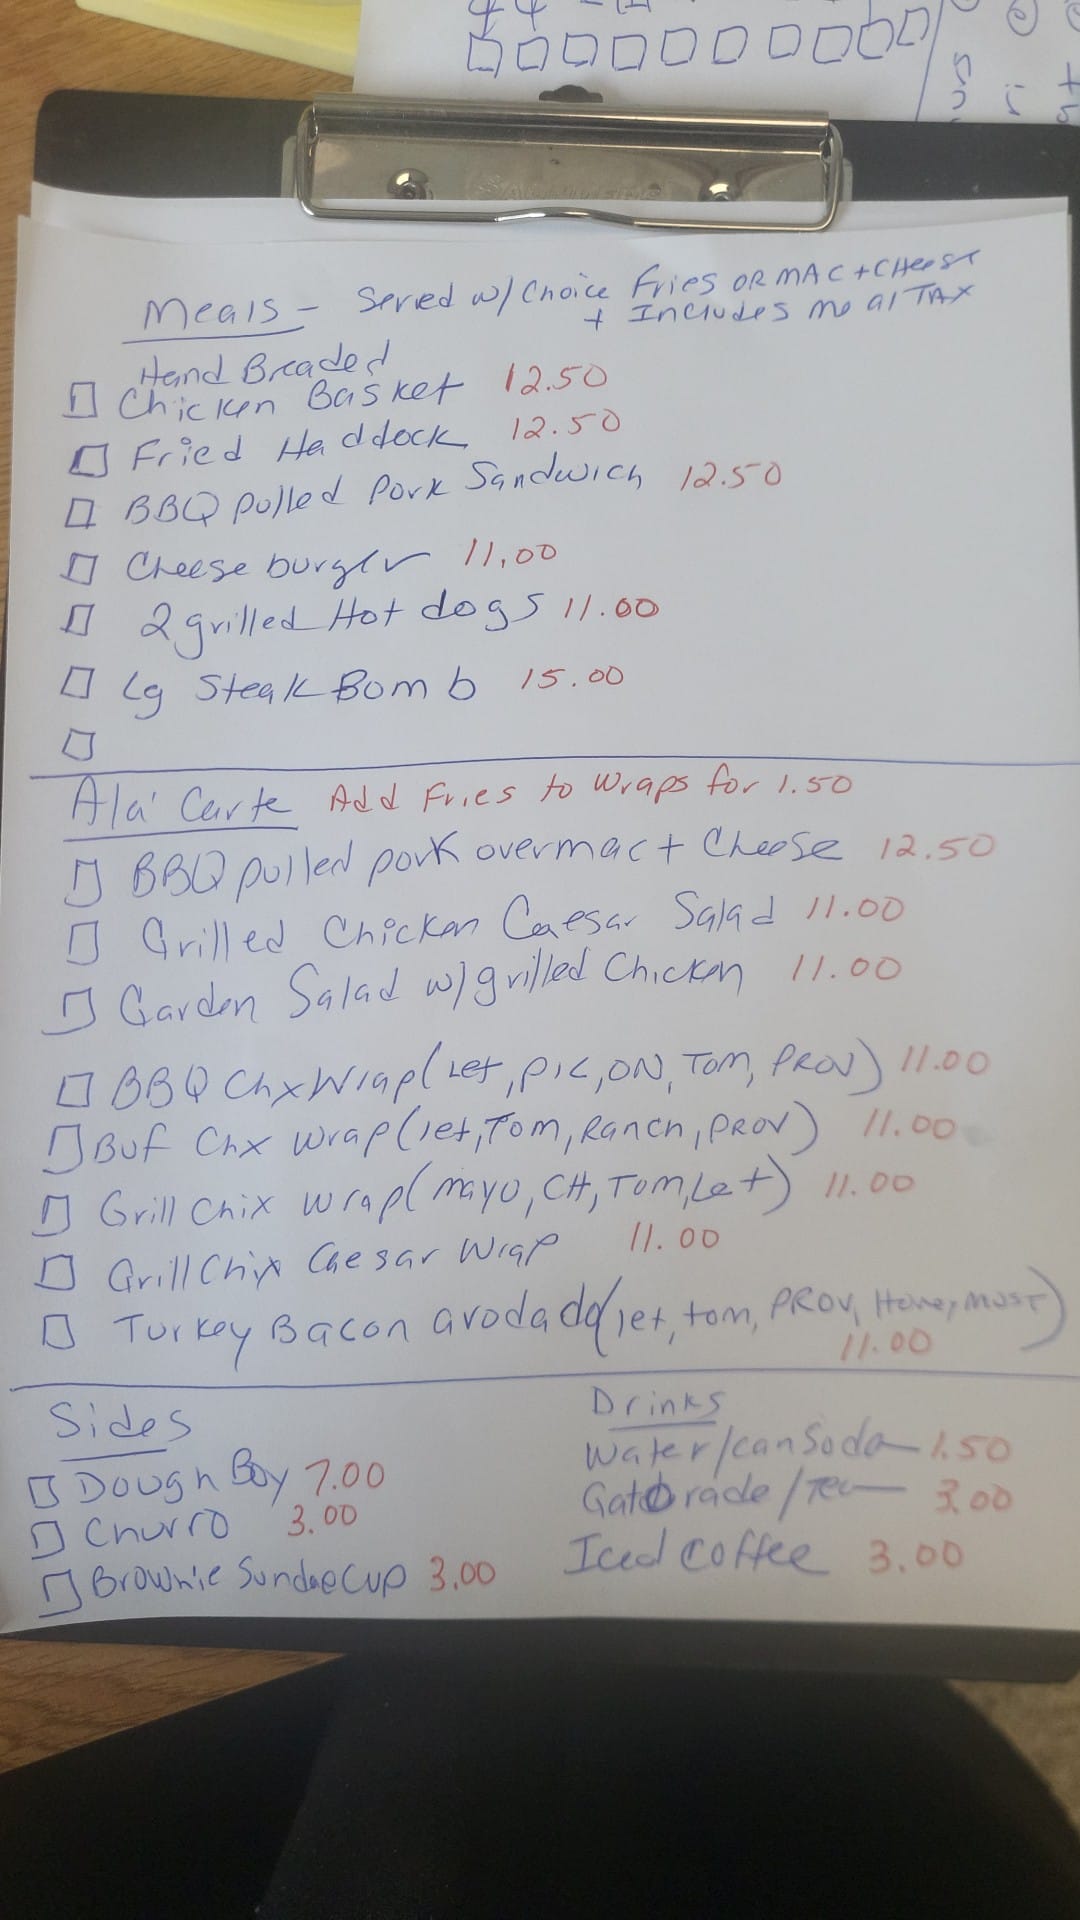 Meals - Served w/ Choice Fries OR MAC + CHeese
+ Includes meal TAX
Hand Breaded
Chicken Basket 12.50
Fried Haddock 12.50
BBQ pulled Pork Sandwich 12.50
Cheese burger 11.00
2 grilled Hot dogs 11.00
Lg Steak Bomb 15.00
Ala' Carte Add Fries to Wraps for 1.50
BBQ pulled pork over mac + Cheese 12.50
Grilled Chicken Caesar Salad 11.00
Garden Salad w/ grilled Chicken 11.00
BBQ Chx Wrap (Let, PIC, ON, Tom, PROV) 11.00
Buf Chx Wrap (let, Tom, Ranch, PROV) 11.00
Grill Chix Wrap (mayo, CH, Tom, Let) 11.00
Grill Chix Caesar Wrap 11.00
Turkey Bacon avodado (let, tom, PROV, Honey MUST)
11.00
Sides
Dough Boy 7.00
Churro 3.00
Brownie Sundae Cup 3.00
Drinks
Water/can Soda 1.50
Gatorade/Tea 3.00
Iced Coffee 3.00